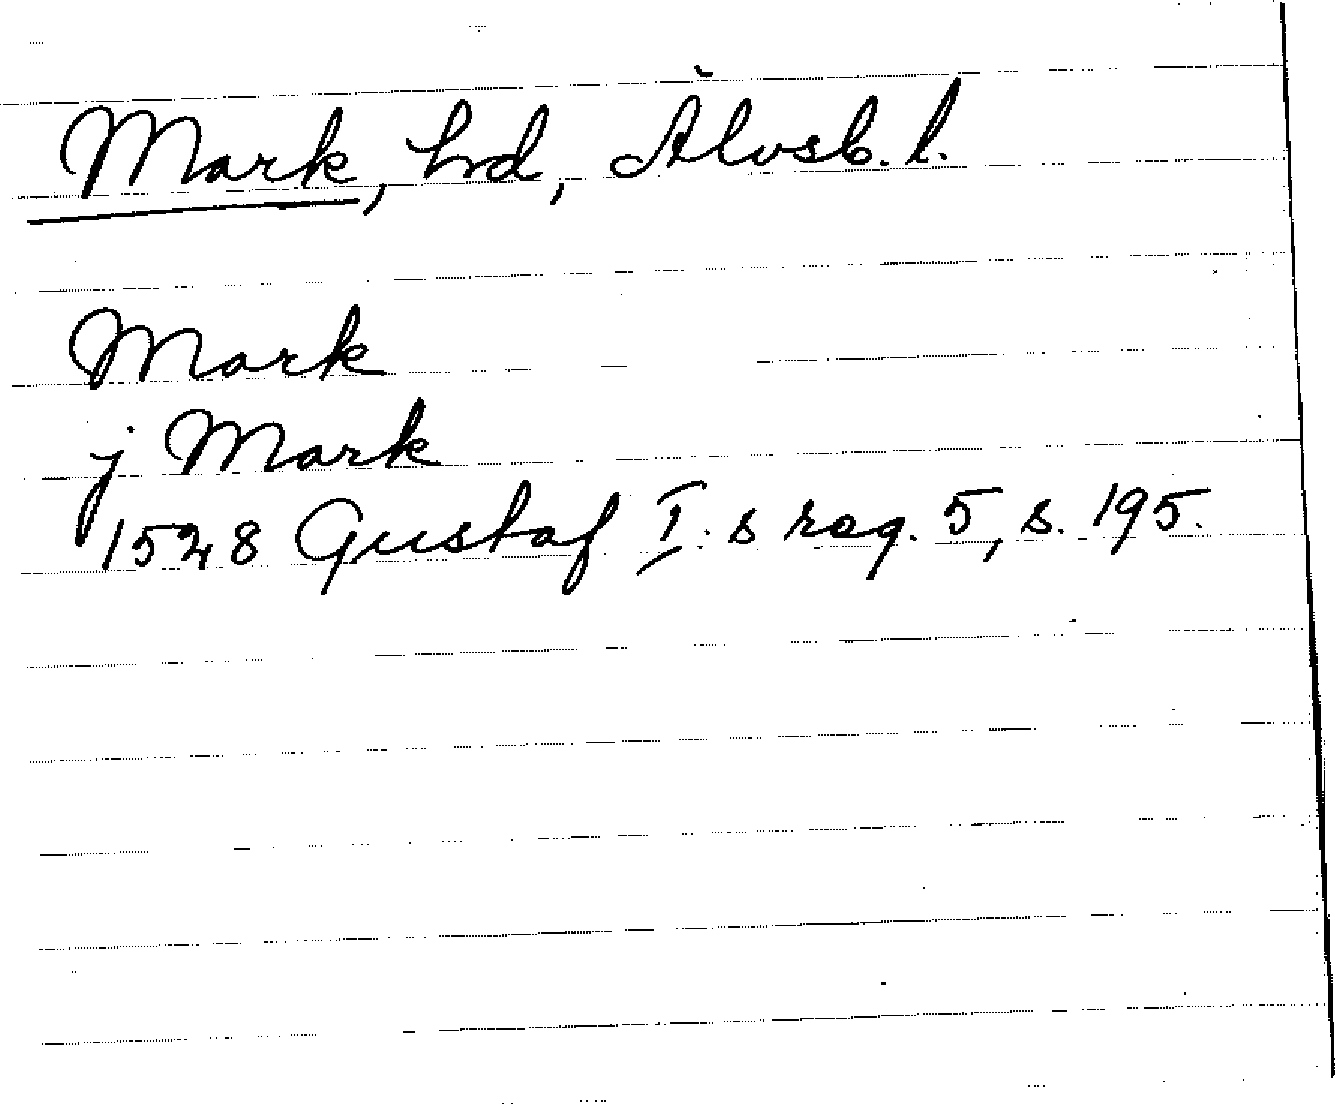 Mark, hd, Älvsb. l.
Mark
j Mark
1528 Gustaf I:s reg. 5, s. 195.